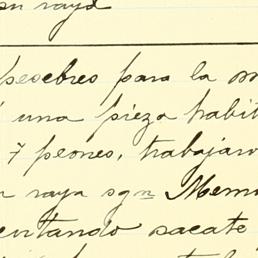 sn raya
pesebres para la m
una pieza habit
7 peones, trabajaro
n raya sgn Memo
entando sacate